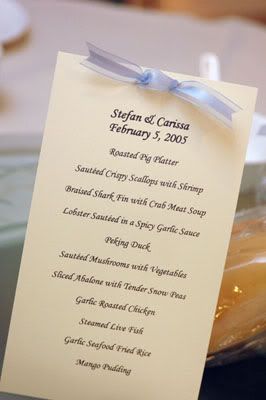 Stefan & Carissa
February 5, 2005
Roasted Pig Platter
Sautéed Crispy Scallops with Shrimp
Braised Shark Fin with Crab Meat Soup
Lobster Sautéed in a Spicy Garlic Sauce
Peking Duck
Sautéed Mushrooms with Vegetables
Sliced Abalone with Tender Snow Peas
Garlic Roasted Chicken
Steamed Live Fish
Garlic Seafood Fried Rice
Mango Pudding